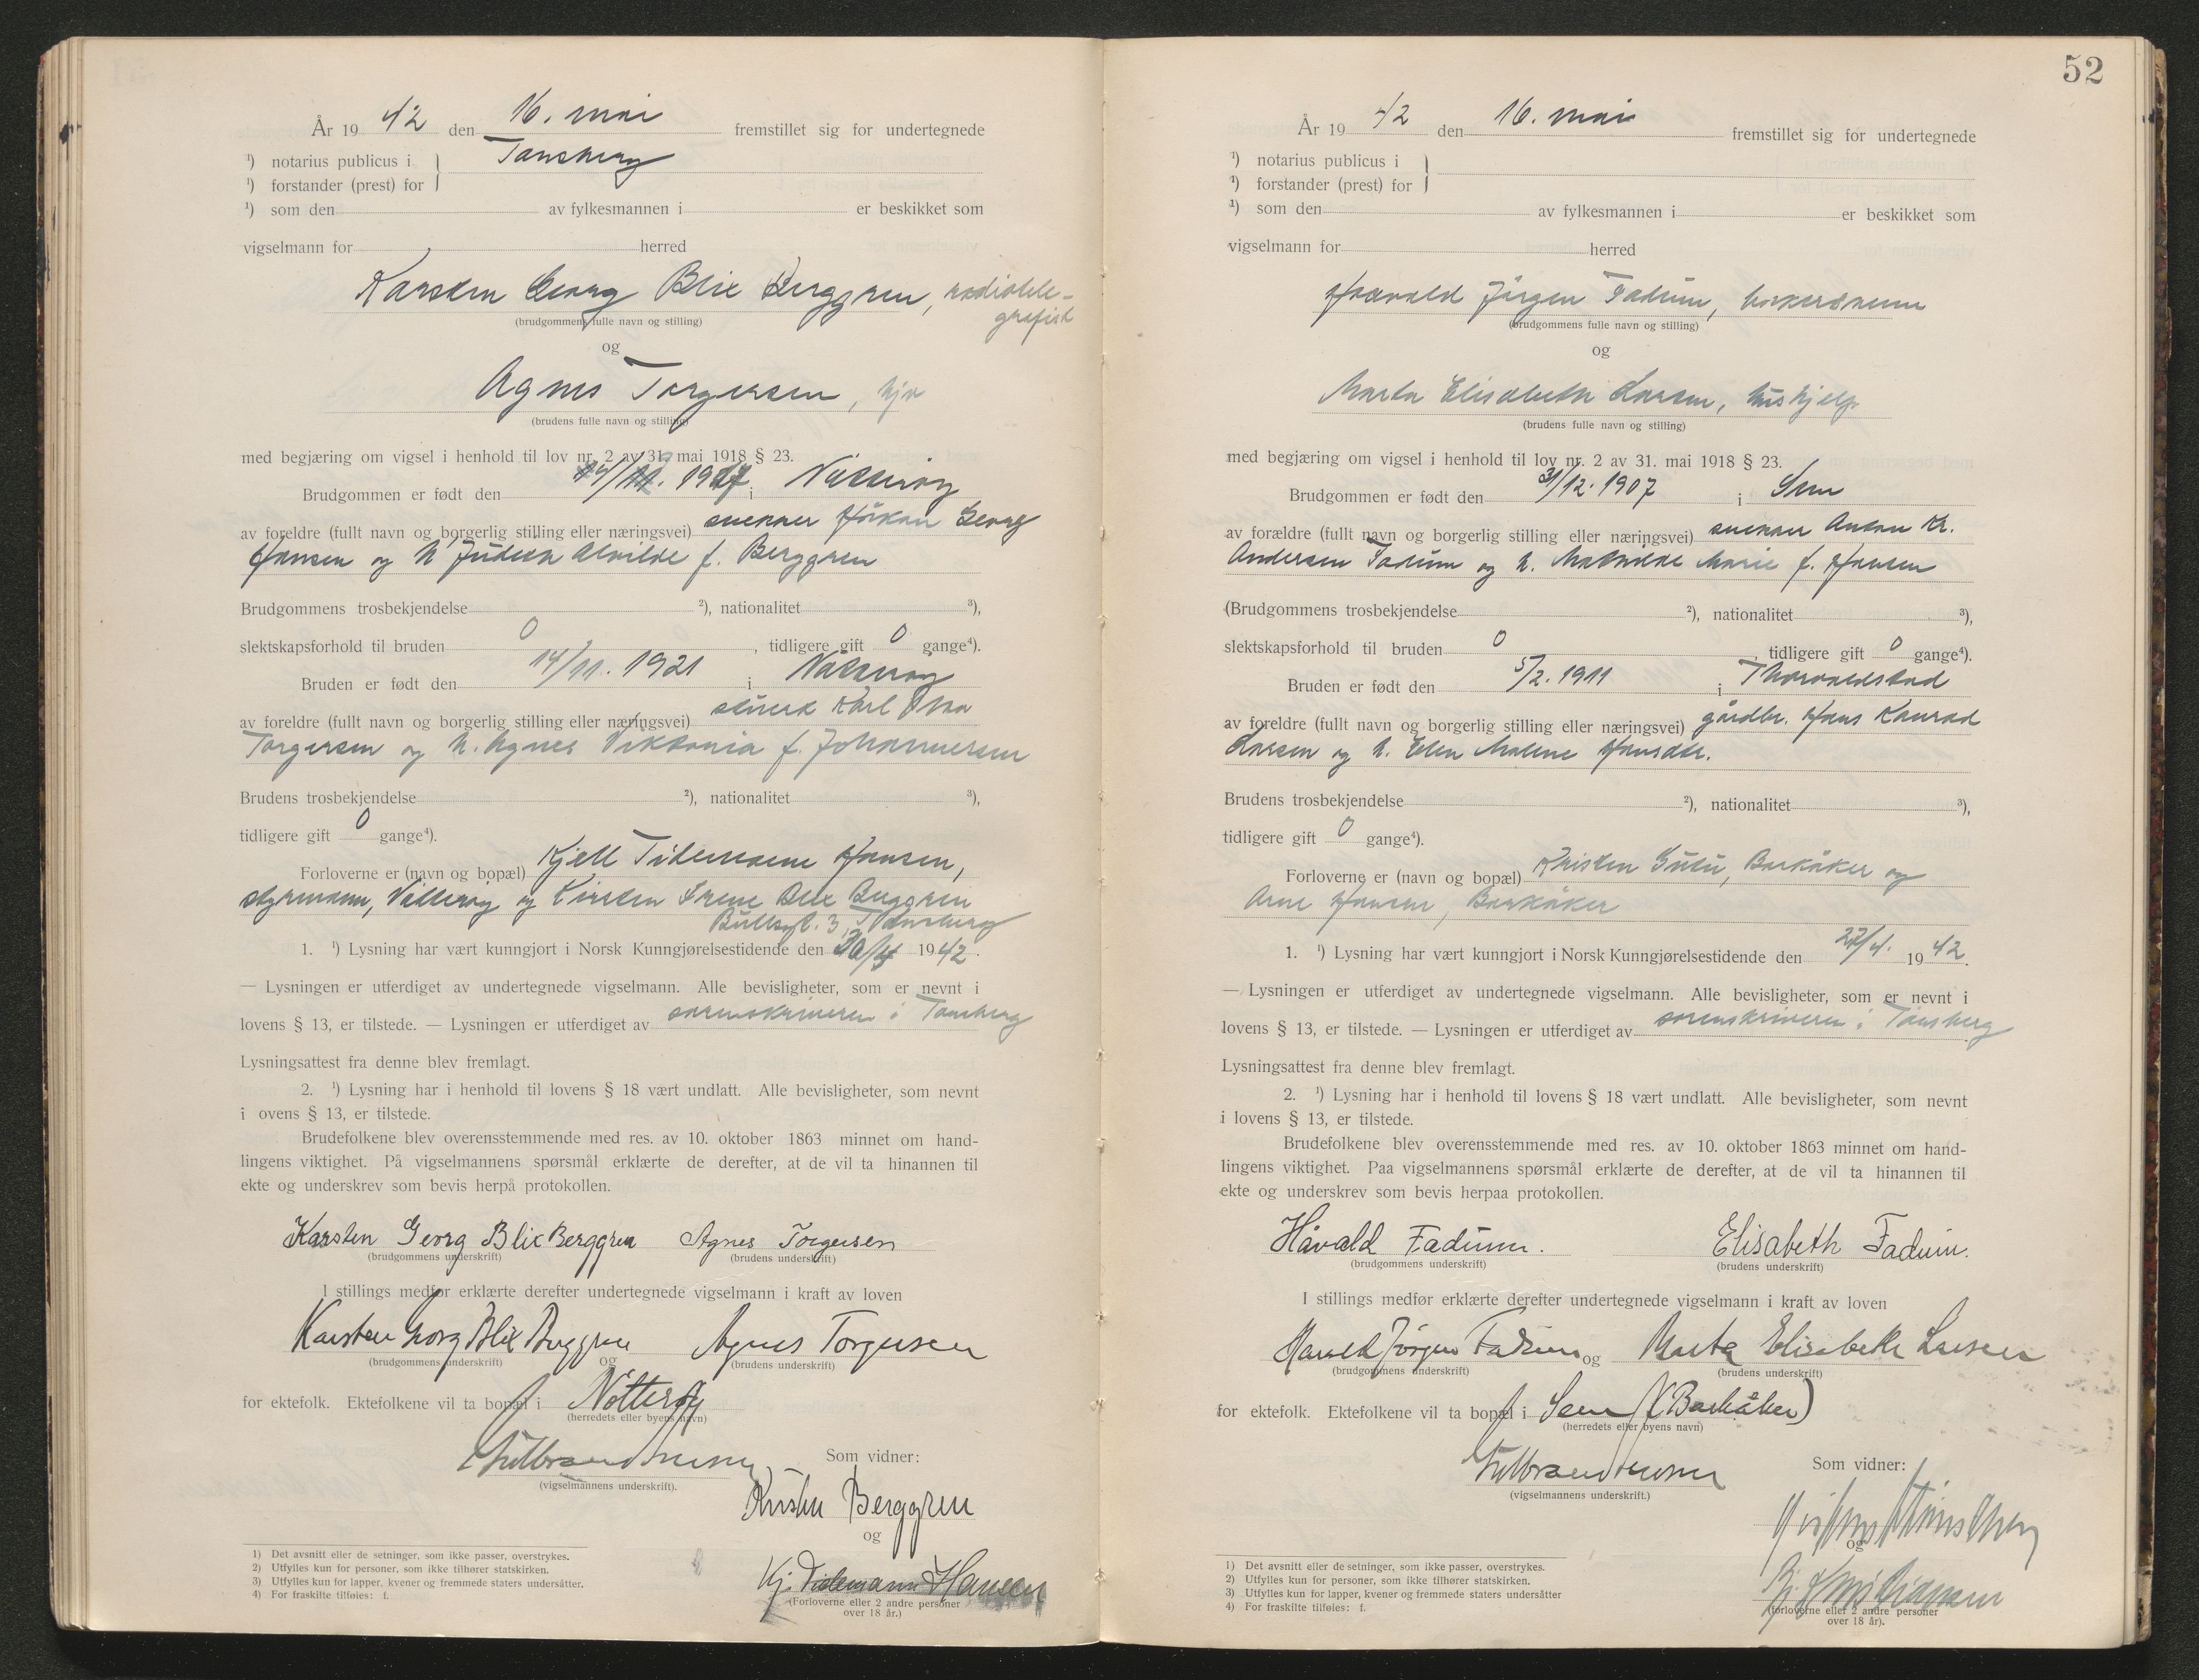 År 19 42 den 16. mai fremstillet sig for undertegnede
¹) notarius publicus i Tønsberg
¹) forstander (prest) for
¹) som den av fylkesmannen i er beskikket som
vigselmann for herred
Karsten Georg Blix Berggren, radiotele-
grafist
(brudgommens fulle navn og stilling)
og
Agnes Torgersen,
(brudens fulle navn og stilling)
med begjæring om vigsel i henhold til lov nr. 2 av 31. mai 1918 § 23.
Brudgommen er født den i Nøtterøy
av foreldre (fullt navn og borgerlig stilling eller næringsvei) snekker Håkon Georg
Hansen og h. Judith Alvilde f. Berggren
Brudgommens trosbekjendelse ²), nationalitet ³),
slektskapsforhold til bruden 0, tidligere gift 0 gange⁴).
Bruden er født den 14/11. 1921 i Nøtterøy
av foreldre (fullt navn og borgerlig stilling eller næringsvei) Karl
Torgersen og h. Agnes Viktoria f. Johannessen
Brudens trosbekjendelse ²), nationalitet ³),
tidligere gift 0 gange⁴).
Forloverne er (navn og bopæl) Kjell Tidemann Hansen,
styrmann, Nøtterøy og Kirsten Irene Blix Berggren
3, Tønsberg
1. ¹) Lysning har vært kunngjort i Norsk Kunngjørelsestidende den 19 42.
— Lysningen er utferdiget av undertegnede vigselmann. Alle bevisligheter, som er nevnt i
lovens § 13, er tilstede. — Lysningen er utferdiget av sorenskriveren i Tønsberg
Lysningsattest fra denne blev fremlagt.
2. ¹) Lysning har i henhold til lovens § 18 vært undlatt. Alle bevisligheter, som nevnt
i ovens § 13, er tilstede.
Brudefolkene blev overensstemmende med res. av 10. oktober 1863 minnet om hand-
lingens viktighet. På vigselmannens spørsmål erklærte de derefter, at de vil ta hinannen til
ekte og underskrev som bevis herpå protokollen.
Karsten Georg Blix Berggren Agnes Torgersen
(brudgommens underskrift) (brudens underskrift)
I stillings medfør erklærte derefter undertegnede vigselmann i kraft av loven
Karsten Georg Blix Berggren og Agnes Torgersen
(brudgommens underskrift) (brudens underskrift)
for ektefolk. Ektefolkene vil ta bopæl i Nøtterøy
(herredets eller byens navn)
Som vidner:
(vigselmannens underskrift).
Kirsten Berggren
og
Kj. Tidemann Hansen
(Forloverne eller 2 andre personer
over 18 år.)
1) Det avsnitt eller de setninger, som ikke passer, overstrykes.
2) Utfylles kun for personer, som ikke tilhører statskirken.
3) Utfylles kun for lapper, kvener og fremmede staters undersåtter.
4) For fraskilte tilføies: f.
52
År 19 42 den 16. mai fremstillet sig for undertegnede
¹) notarius publicus i
¹) forstander (prest) for
¹) som den av fylkesmannen i er beskikket som
vigselmann for herred
Haavald Jørgen Fadum,
(brudgommens fulle navn og stilling)
og
Marta Elisabeth Larsen, hushjelp
(brudens fulle navn og stilling)
med begjæring om vigsel i henhold til lov nr. 2 av 31. mai 1918 § 23.
Brudgommen er født den 31/12. 1907 i Sem
av forældre (fullt navn og borgerlig stilling eller næringsvei) snekker Anton Kr.
Andersen Fadum og h. Mathilde Marie f. Hansen
(Brudgommens trosbekjendelse ²), nationalitet ³),
slektskapsforhold til bruden 0, tidligere gift 0 gange⁴).
Bruden er født den 5/2. 1911 i
av foreldre (fullt navn og borgerlig stilling eller næringsvei) gårdbr. Hans Konrad
Larsen og h. Elen Malene Hansdtr.
Brudens trosbekjendelse ²), nationalitet ³),
tidligere gift 0 gange⁴).
Forloverne er (navn og bopæl) Kristen Gutu, Barkåker og
Arne Hansen, Barkåker
1. ¹) Lysning har vært kunngjort i Norsk Kunngjørelsestidende den 27/4. 19 42.
— Lysningen er utferdiget av undertegnede vigselmann. Alle bevisligheter, som er nevnt i
lovens § 13, er tilstede. — Lysningen er utferdiget av sorenskriveren i Tønsberg
Lysningsattest fra denne blev fremlagt.
2. ¹) Lysning har i henhold til lovens § 18 vært undlatt. Alle bevisligheter, som nevnt
i lovens § 13, er tilstede.
Brudefolkene blev overensstemmende med res. av 10. oktober 1863 minnet om hand-
lingens viktighet. Paa vigselmannens spørsmål erklærte de derefter, at de vil ta hinannen til
ekte og underskrev som bevis herpaa protokollen.
Håvald Fadum. Elisabeth Fadum.
(brudgommens underskrift) (brudens underskrift)
I stillings medfør erklærte derefter undertegnede vigselmann i kraft av loven
Havald Jørgen Fadum og Marta Elisabeth Larsen
(brudgommens underskrift) (brudens underskrift)
for ektefolk. Ektefolkene vil ta bopæl i Sem (Barkåker)
(herredets eller byens navn)
Som vidner:
(vigselmannens underskrift.)
og
(forloverne eller 2 andre personer
over 18 år).
1) Det avsnitt eller de setninger, som ikke passer, overstrykes.
2) Utfylles kun for personer, som ikke tilhører statskirken.
3) Utfylles kun for lapper, kvener og fremmede staters undersåtter
4) For fraskilte tilføies: f.